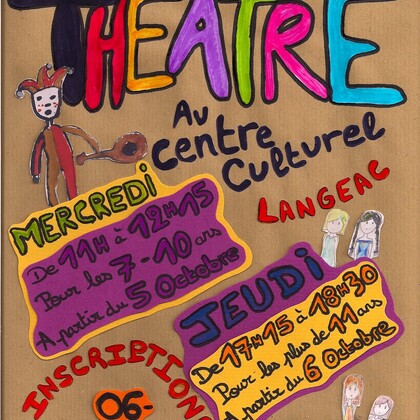 THEATRE
Au
Centre
Culturel
LANGEAC
MERCREDI
De 11H à 12H15
Pour les 7-10 ans
A partir du 5 Octobre
JEUDI
De 17H15 à 18H30
Pour les plus de 11 ans
A partir du 6 Octobre
INSCRIPTIONS
06-